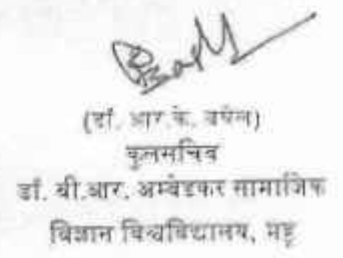 (डॉ. आर.के. बघेल)
कुलसचिव
डॉ. बी.आर. अम्बेडकर सामाजिक
विज्ञान विश्वविद्यालय, महू